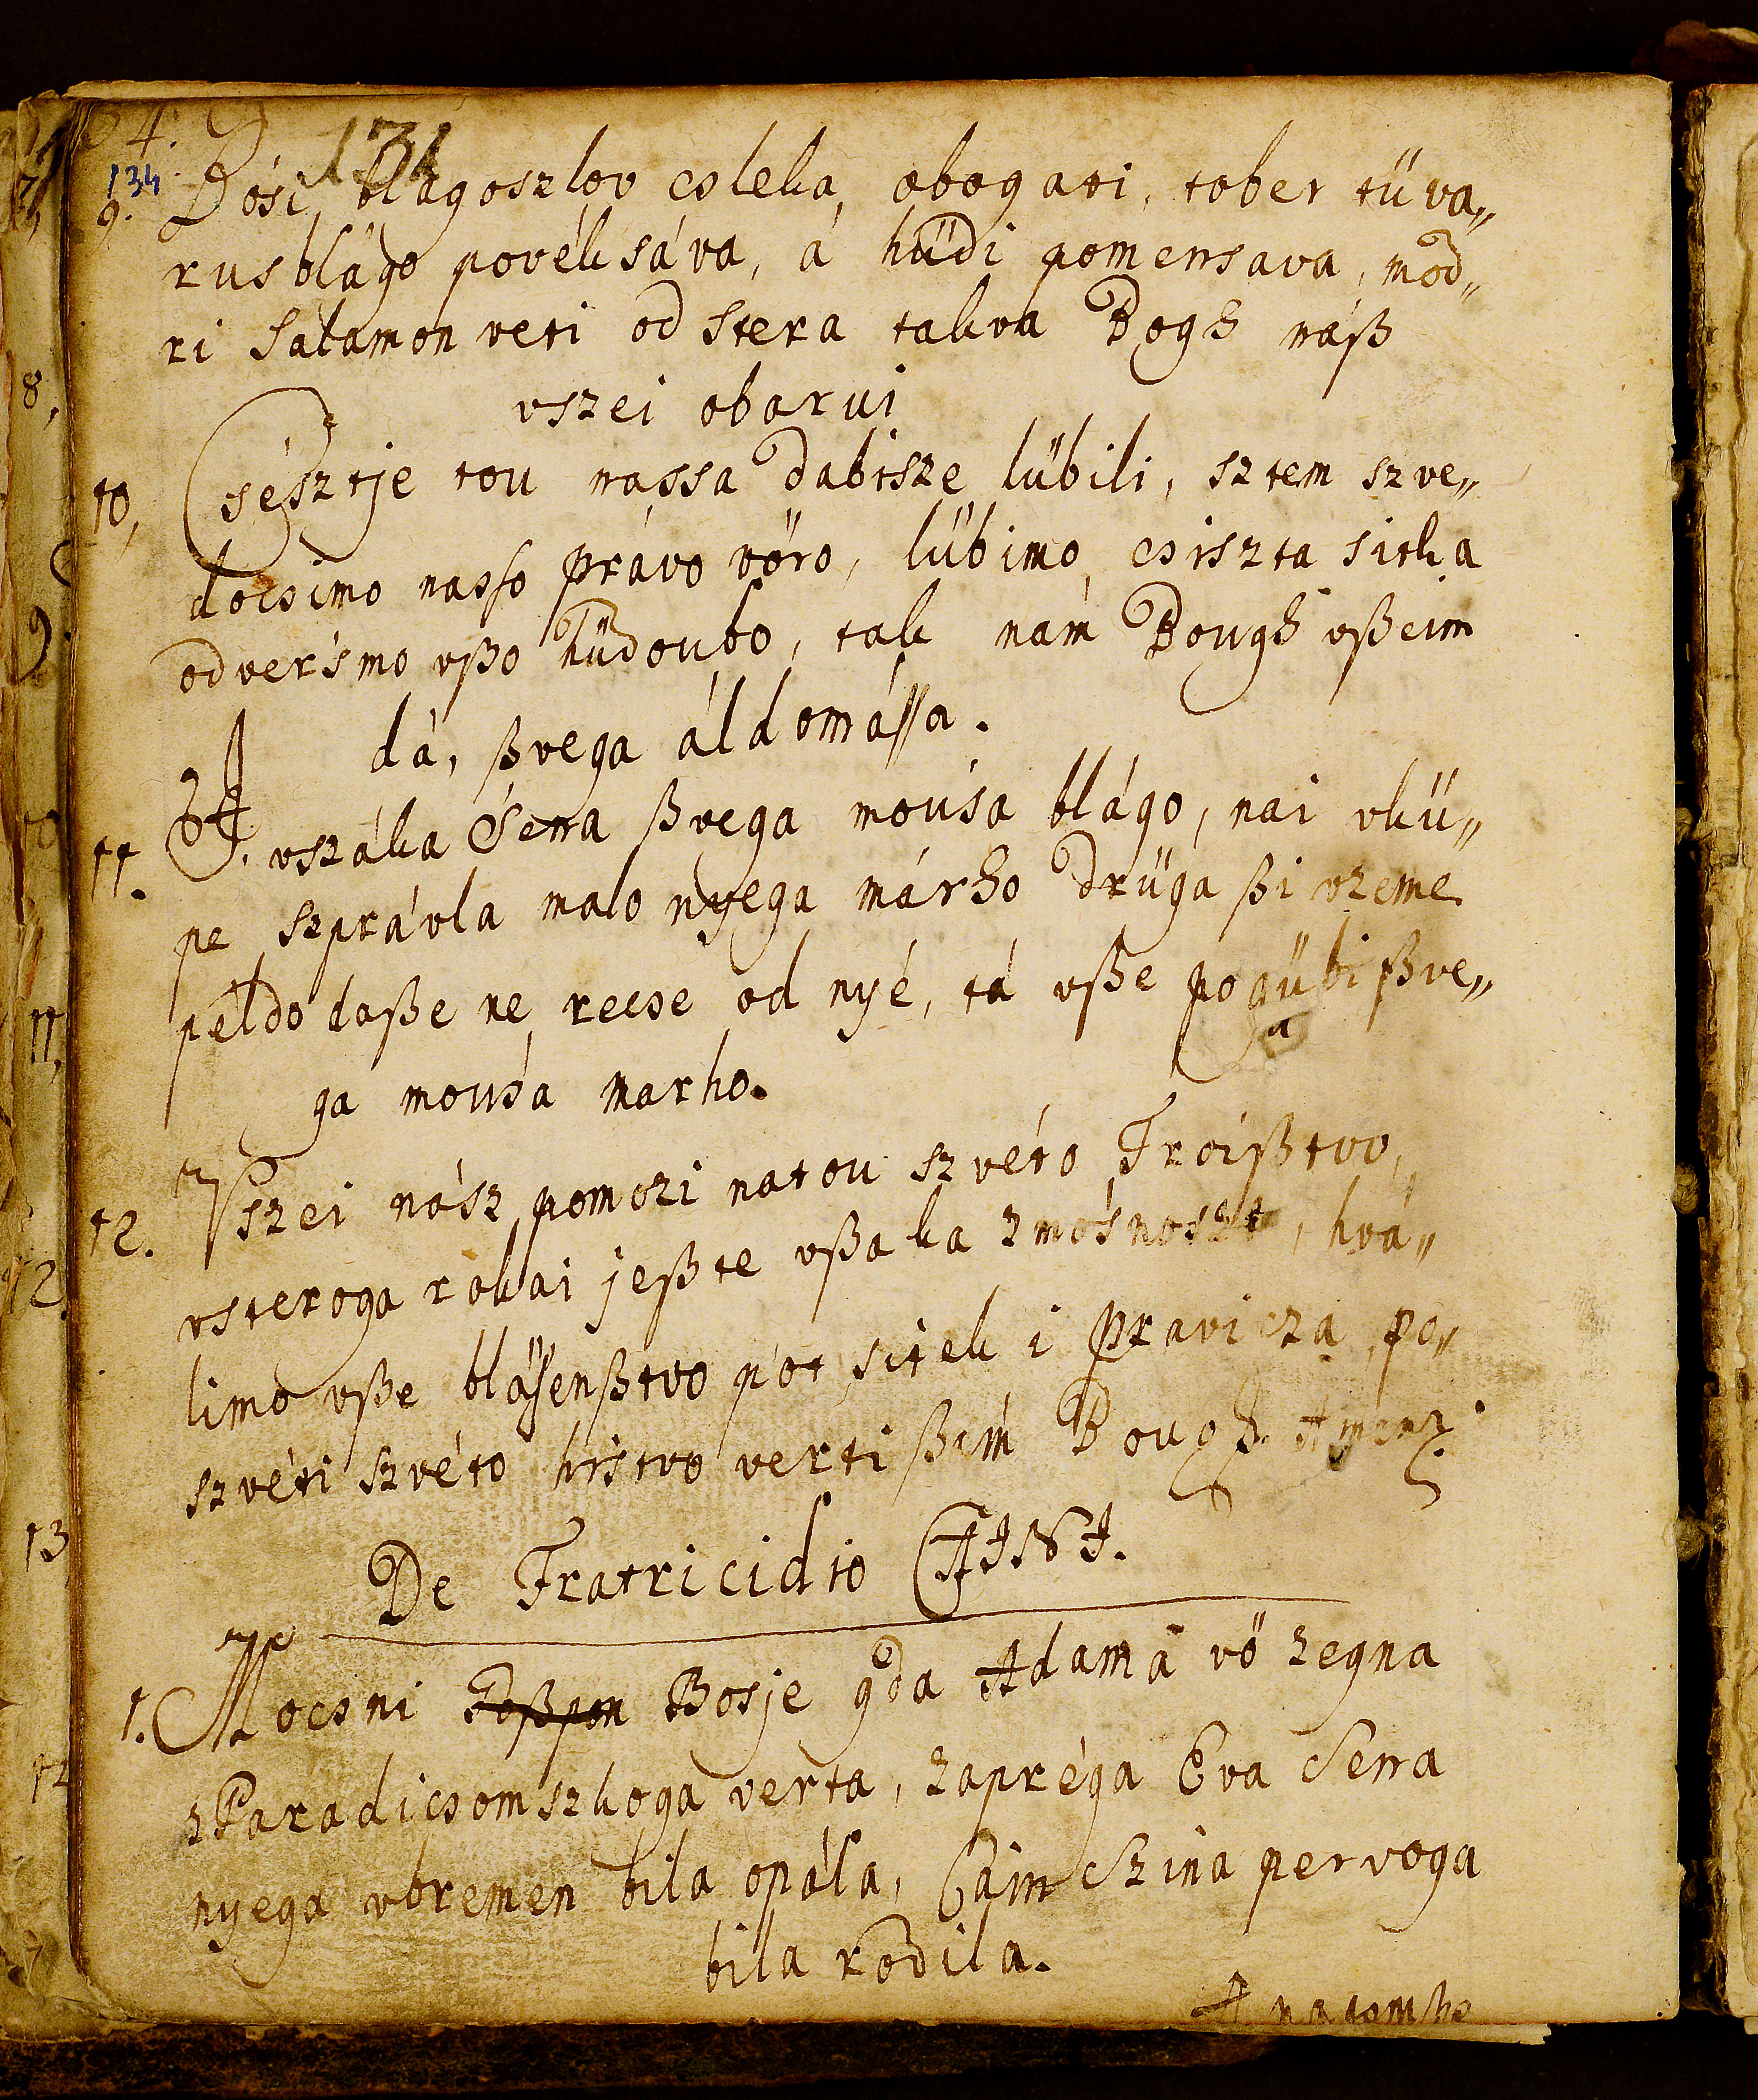 134
131
9. Bósi blagoszlov csleka, obogati, tober tüva„
rus blágo povéksáva, á hüdi pomensava, mod„
ri Salamon veti od stera takva Bogh náß
vszei obarui
10, Csésztje tou nassa dabisze lübili, sztem szve„
docsimo nasso právo vöro, lübimo csiszta sitka
odversmo vßo hüdoubo, tak nám Bough vßeim
dá, ßvega áldomássa.
11. A vszáka Sena ßvega mousa blágo, nai vkü„
pe szprávla malo nyega márho drüga ßi vzeme
peldo daße ne recse od nyé, tá vße pogübi ßve„
a
ga mousa marho.
12. Vszei nász pomozi natou szvéto Troißtvo,
vsteroga rokai jeßte vßaka zmósnoszt, hvá„
limo vße blásenßtvo pot sitek i pravicza po„
szvéti szvéto hristvo verti ßim Bough Amen.
De Fratricidio CAINI.
1. Mocsni Boßje gda Adamá vö zegna
z Paradicsomszkoga verta, zapréga Eva Sena
nyega vbremen bila opála, Cain Szina pervoga
bila rodila.
A natomhe
8,
9.
10
11,
12.
13